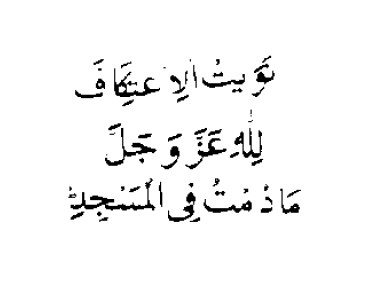 نَوَيتُ الاِ عتِكَافَ
لِلّٰهِ عَزَّ وَ جَلَّ
مَا دُ مْتُ فِي الْمَسْجِدِ